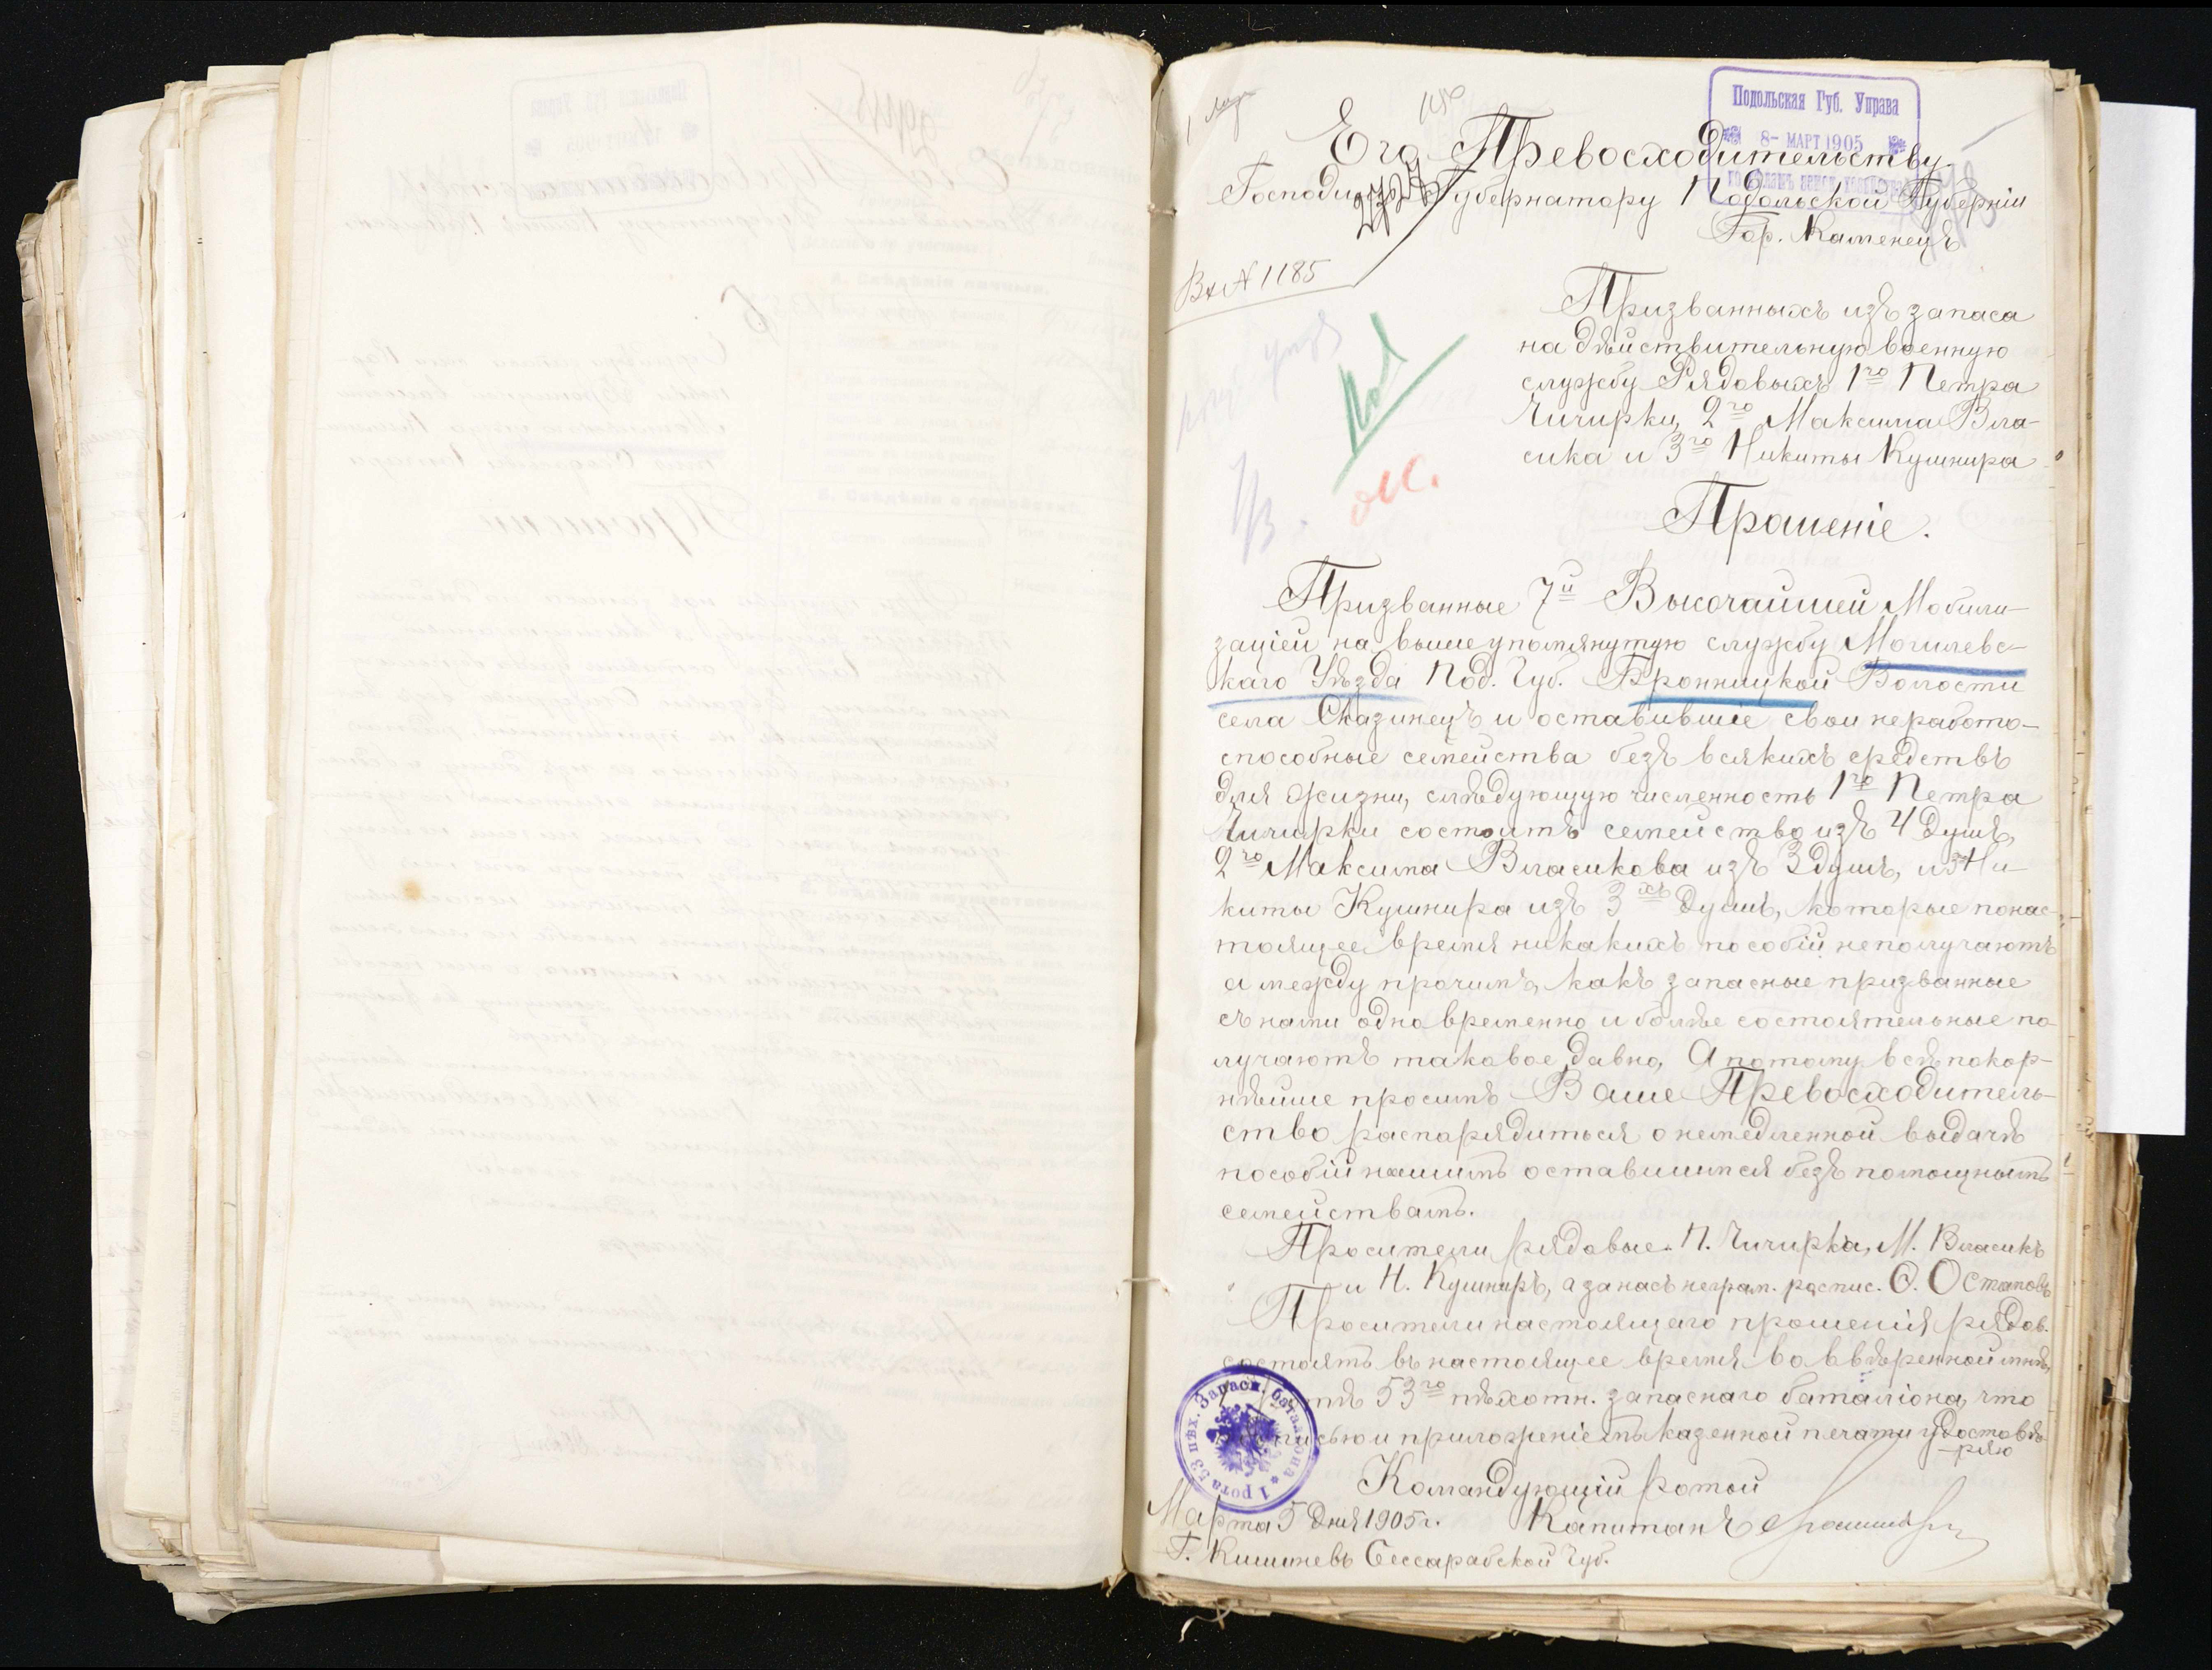 Подольская Губ. Управа
8- МАРТ 1905
Его Превосходительству
Господину Губернатору Подольской Губерніи
Гор. Каменецъ
Вх № 1185
Призванныхъ изъ запаса
на дѣйствительную военную
службу Рядовыхъ 1го Петра
Чичирки, 2го Максима Вла-
сика и 3го Никиты Кушнира
Прошеніе.
Призванные 7й Высочайшей Мобили-
заціей на вышеупомянутую службу Могилевс-
каго Уѣзда Под. Губ. Бронницкой Волости
села Сказинецъ и оставившіе свои неработо-
способные семейства безъ всякихъ средствъ
для жизни, слѣдующую численность 1го Петра
Чичирки состоитъ семейство изъ 4 душъ,
2го Максима Власикова изъ 3 душъ, и 3го Ни-
киты Кушнира изъ 3хъ душъ, которые понас-
тоящее время никакихъ пособій неполучаютъ
а между прочимъ, какъ запасные призванные
съ нами одновременно и болѣе состоятельные по-
лучаютъ таковое давно, А потому всѣпокор-
нѣйше просимъ Ваше Превосходитель-
ство распорядиться о немедленной выдачѣ
пособій нашимъ оставшимся безъ помощнымъ
семействамъ.
Просители рядовые П. Чичирка, М. Власикъ
и Н. Кушниръ, а за насъ неграм. роспис. Ѳ. Остаповъ
Просители настоящаго прошенія рядов.
состоятъ въ настоящее время во ввѣренной мнѣ,
53го пѣхотн. запаснаго баталіона, что
и приложеніемъ казенной печати удостовѣ-
ряю
Командующій ротой
Марта 5 дня 1905 г. Капитанъ
Г. Кишиневъ Бессарабской Губ.
1 рота 53 пѣх. Запасн. баталіона